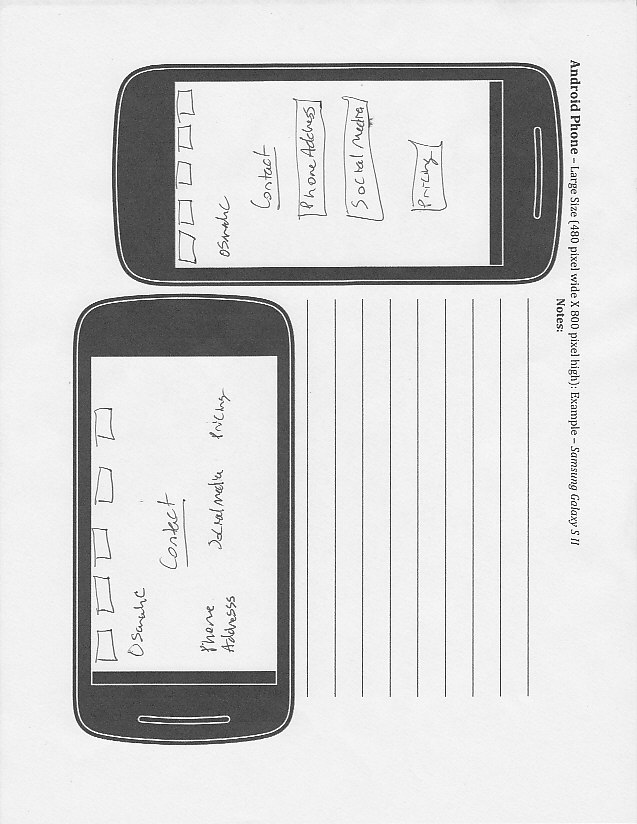 Android Phone – Large Size (480 pixel wide X 800 pixel high): Example – Samsung Galaxy S II
Notes:
Contact
Phone Address
Social Media
Pricing
Contact
Phone
Addresss
Social Media
Pricing